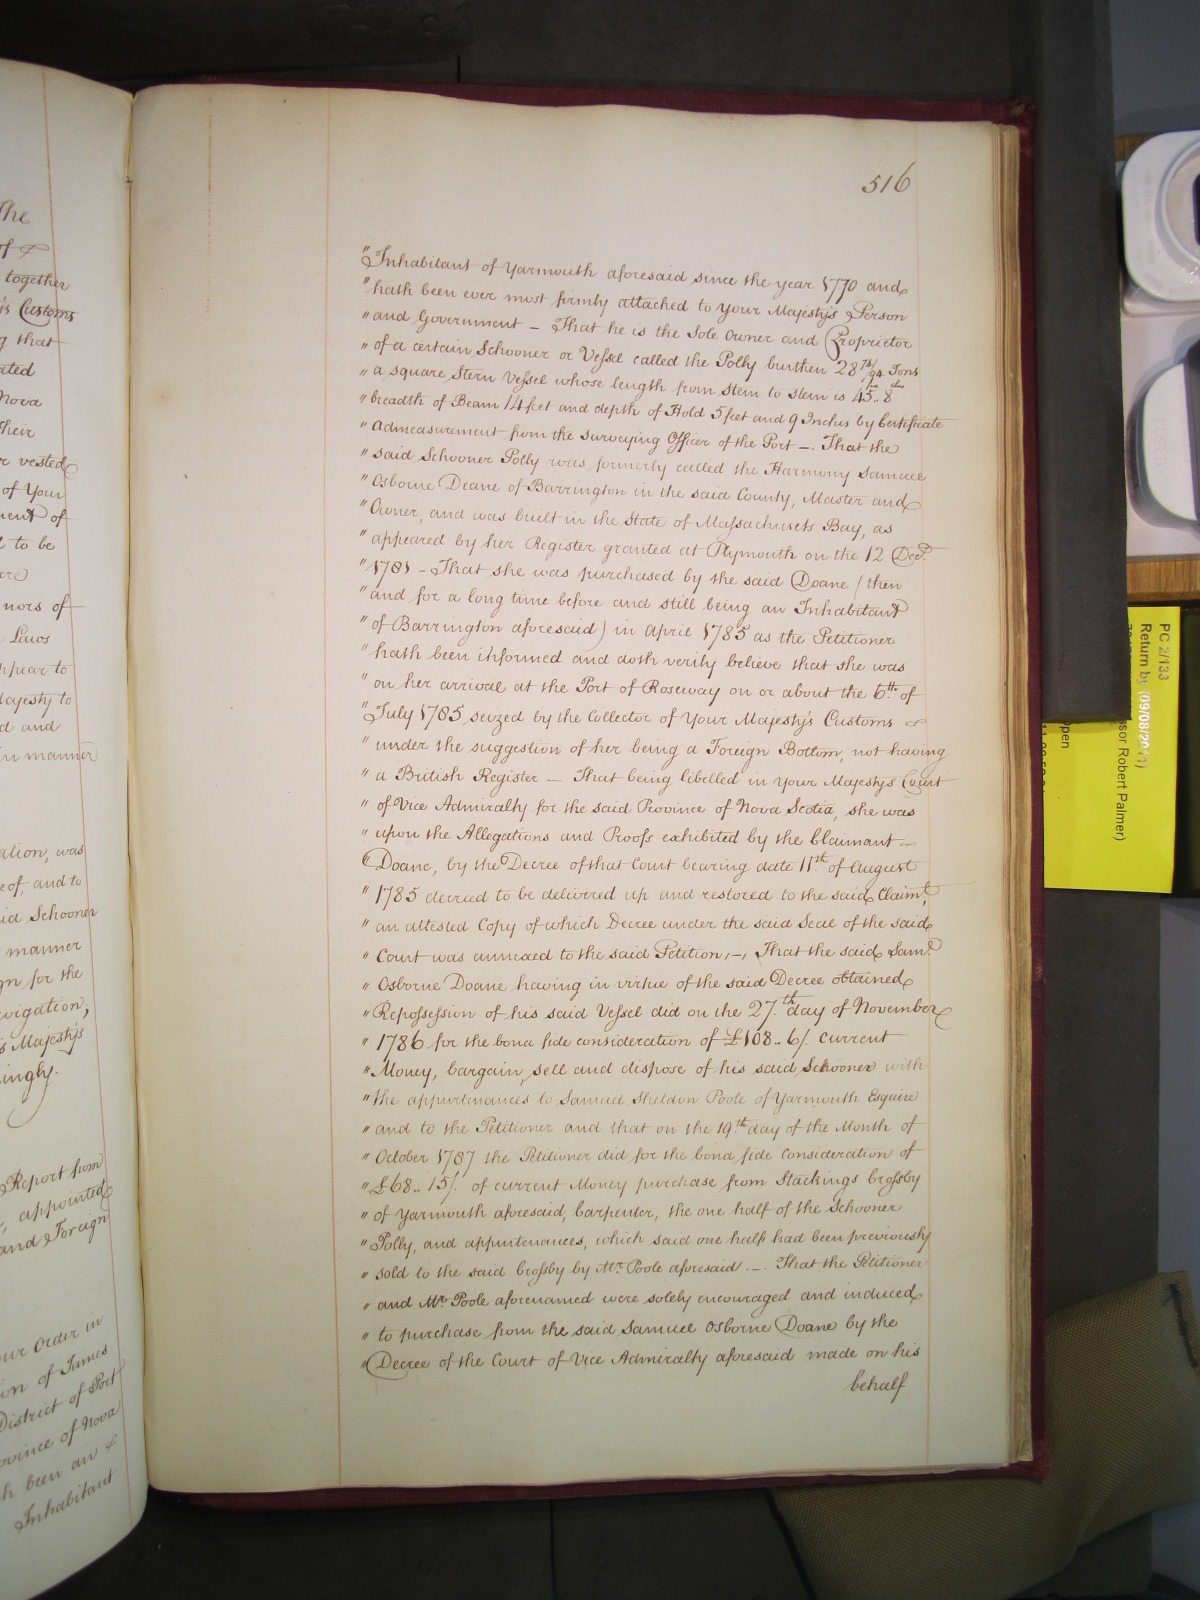 The
of &
together
's Customs
g that
ated
Nova
their
r vested
of Your
ment of
l to be
ere
nors of
Laws
appear to
Majesty to
d and
in manner
ation, was
eof, and to
id Schooner
manner
gn for the
avigation,
s Majesty's
ingly.
Report from
, appointed
and Foreign
our Order in
on of James
District of Port
rovince of Nova
h been an &
Inhabitant
516
"Inhabitant of Yarmouth aforesaid since the year 1770 and
"hath been ever most firmly attached to Your Majesty's Person
"and Government – That he is the Sole Owner and Proprietor
"of a certain Schooner or Vessel called the Polly burthen 28 78/94 Tons
"a square Stern Vessel whose length from stem to stern is 45.. 8
"breadth of Beam 14 feet and depth of Hold 5 feet and 9 Inches by Certificate
"admeasurement from the surveying Officer of the Port –. That the
"said Schooner Polly was formerly called the Harmony Samuel
"Osborne Doane of Barrington in the said County, Master and
"Owner, and was built in the State of Massachusets Bay, as
"appeared by her Register granted at Plymouth on the 12 Decr.
"1781 – That she was purchased by the said Doane (then
"and for a long time before and still being an Inhabitant
"of Barrington aforesaid) in April 1785 as the Petitioner
"hath been informed and doth verily believe that she was
"on her arrival at the Port of Roseway on or about the 6th. of
"July 1785, seized by the Collector of Your Majesty's Customs
"under the suggestion of her being a Foreign Bottom, not having
"a British Register – That being libelled in Your Majesty's Court
"of Vice Admiralty for the said Province of Nova Scotia, she was
"upon the Allegations and Proofs exhibited by the Claimant
"Doane, by the Decree of that Court bearing date 11th. of August
"1785 decreed to be delivered up and restored to the said Claimt.
"an attested Copy of which Decree under the said Seal of the said
"Court was annexed to the said Petition, –, That the said Saml.
"Osborne Doane having in virtue of the said Decree obtained
"Repossession of his said Vessel did on the 27th. day of November
"1786 for the bona fide consideration of £108.. 6/. current
"Money, bargain, sell and dispose of his said Schooner with
"the appurtenances to Samuel Sheldon Poole of Yarmouth Esquire
"and to the Petitioner and that on the 19th. day of the Month of
"October 1787 the Petitioner did for the bona fide consideration of
"£68.. 15/. of current Money purchase from Stackings Crossby
"of Yarmouth aforesaid, Carpenter, the one half of the Schooner
"Polly, and appurtenances, which said one half had been previously
"sold to the said Crossby by Mr. Poole aforesaid. –. That the Petitioner
"and Mr. Poole aforenamed were solely encouraged and induced
"to purchase from the said Samuel Osborne Doane by the
"Decree of the Court of Vice Admiralty aforesaid made on his
behalf
PC 2/133
Return by (09/08/2011)
ssor Robert Palmer)